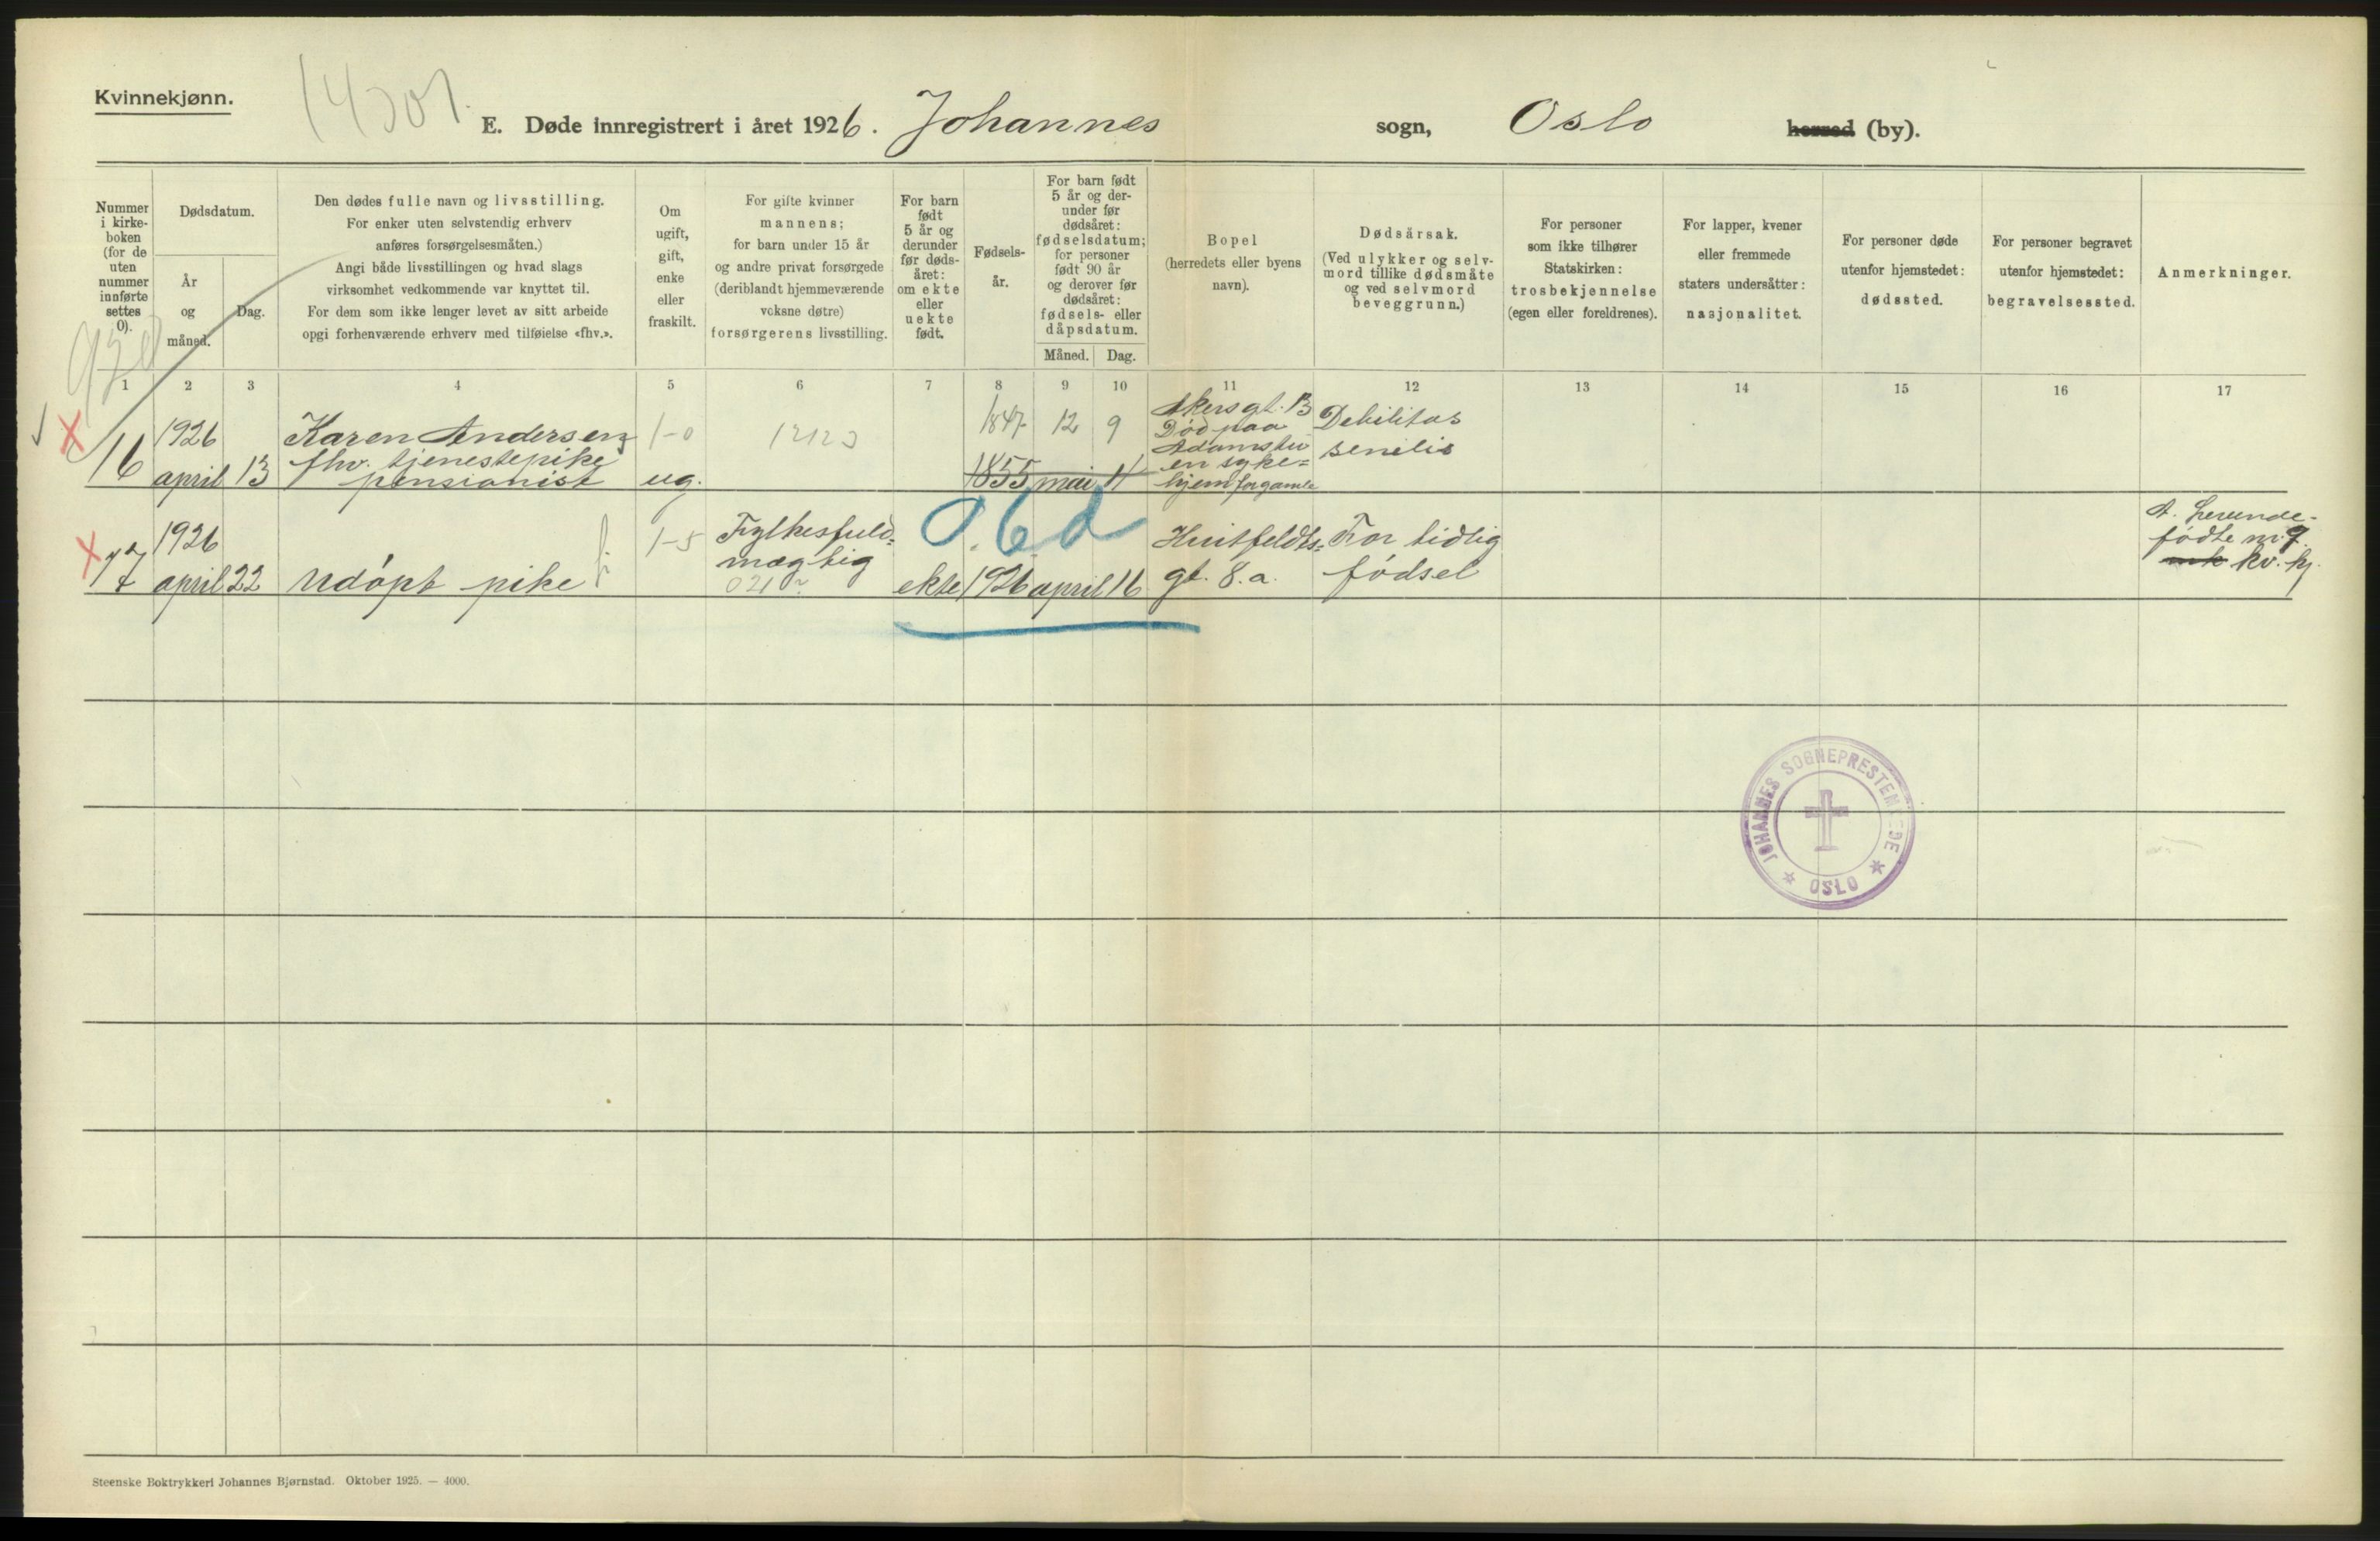 Kvinnekjønn.
E. Døde innregistrert i året 1926. Johannes sogn, Oslo herred (by).
Nummer
i kirke-
boken
(for de
uten
nummer
innførte
settes
0).
Dødsdatum.
År
og
måned.
Dag.
Den dødes fulle navn og livsstilling.
For enker uten selvstendig erhverv
anføres forsørgelsesmåten.)
Angi både livsstillingen og hvad slags
virksomhet vedkommende var knyttet til.
For dem som ikke lenger levet av sitt arbeide
opgi forhenværende erhverv med tilføielse «fhv.».
Om
ugift,
gift,
enke
eller
fraskilt.
For gifte kvinner
mannens;
for barn under 15 år
og andre privat forsørgede
(deriblandt hjemmeværende
voksne døtre)
forsørgerens livsstilling.
For barn
født
5 år og
derunder
før døds-
året:
om ekte
eller
uekte
født.
Fødsels-
år.
For barn født
5 år og der-
under før
dødsåret:
fødselsdatum;
for personer
født 90 år
og derover før
dødsåret:
fødsels- eller
dåpsdatum.
Måned. Dag.
Bopel
(herredets eller byens
navn).
Dødsårsak.
(Ved ulykker og selv-
mord tillike dødsmåte
og ved selvmord
beveggrunn.)
For personer
som ikke tilhører
Statskirken:
trosbekjennelse
(egen eller foreldrenes).
For lapper, kvener
eller fremmede
staters undersåtter:
nasjonalitet.
For personer døde
utenfor hjemstedet:
dødssted.
For personer begravet
utenfor hjemstedet:
begravelsessted.
Anmerkninger.
1 2 3 4 5 6 7 8 9 10 11 12 13 14 15 16 17
16
1926
april 13
Karen Andersen
fhv. tjenestepike
pensionist
1-0
ug.
12123
1847 12 9
1855 mai 11
Akersgt. 13
Død paa
Adamstu
en syke=
hjem for gamle
Debilitas
senilis
17
1926
april 22
Udøpt pike
1-5
Fylkesfuld=
mægtig
ekte 1926 april 16
0.6d
Huitfeldts=
gt. 8. a.
For tidlig
fødsel
A. Levende-
fødte nr. 9
kv. kj.
JOHANNES SOGNEPRESTEMBEDE
OSLO
Steenske Boktrykkeri Johannes Bjørnstad. Oktober 1925. — 4000.